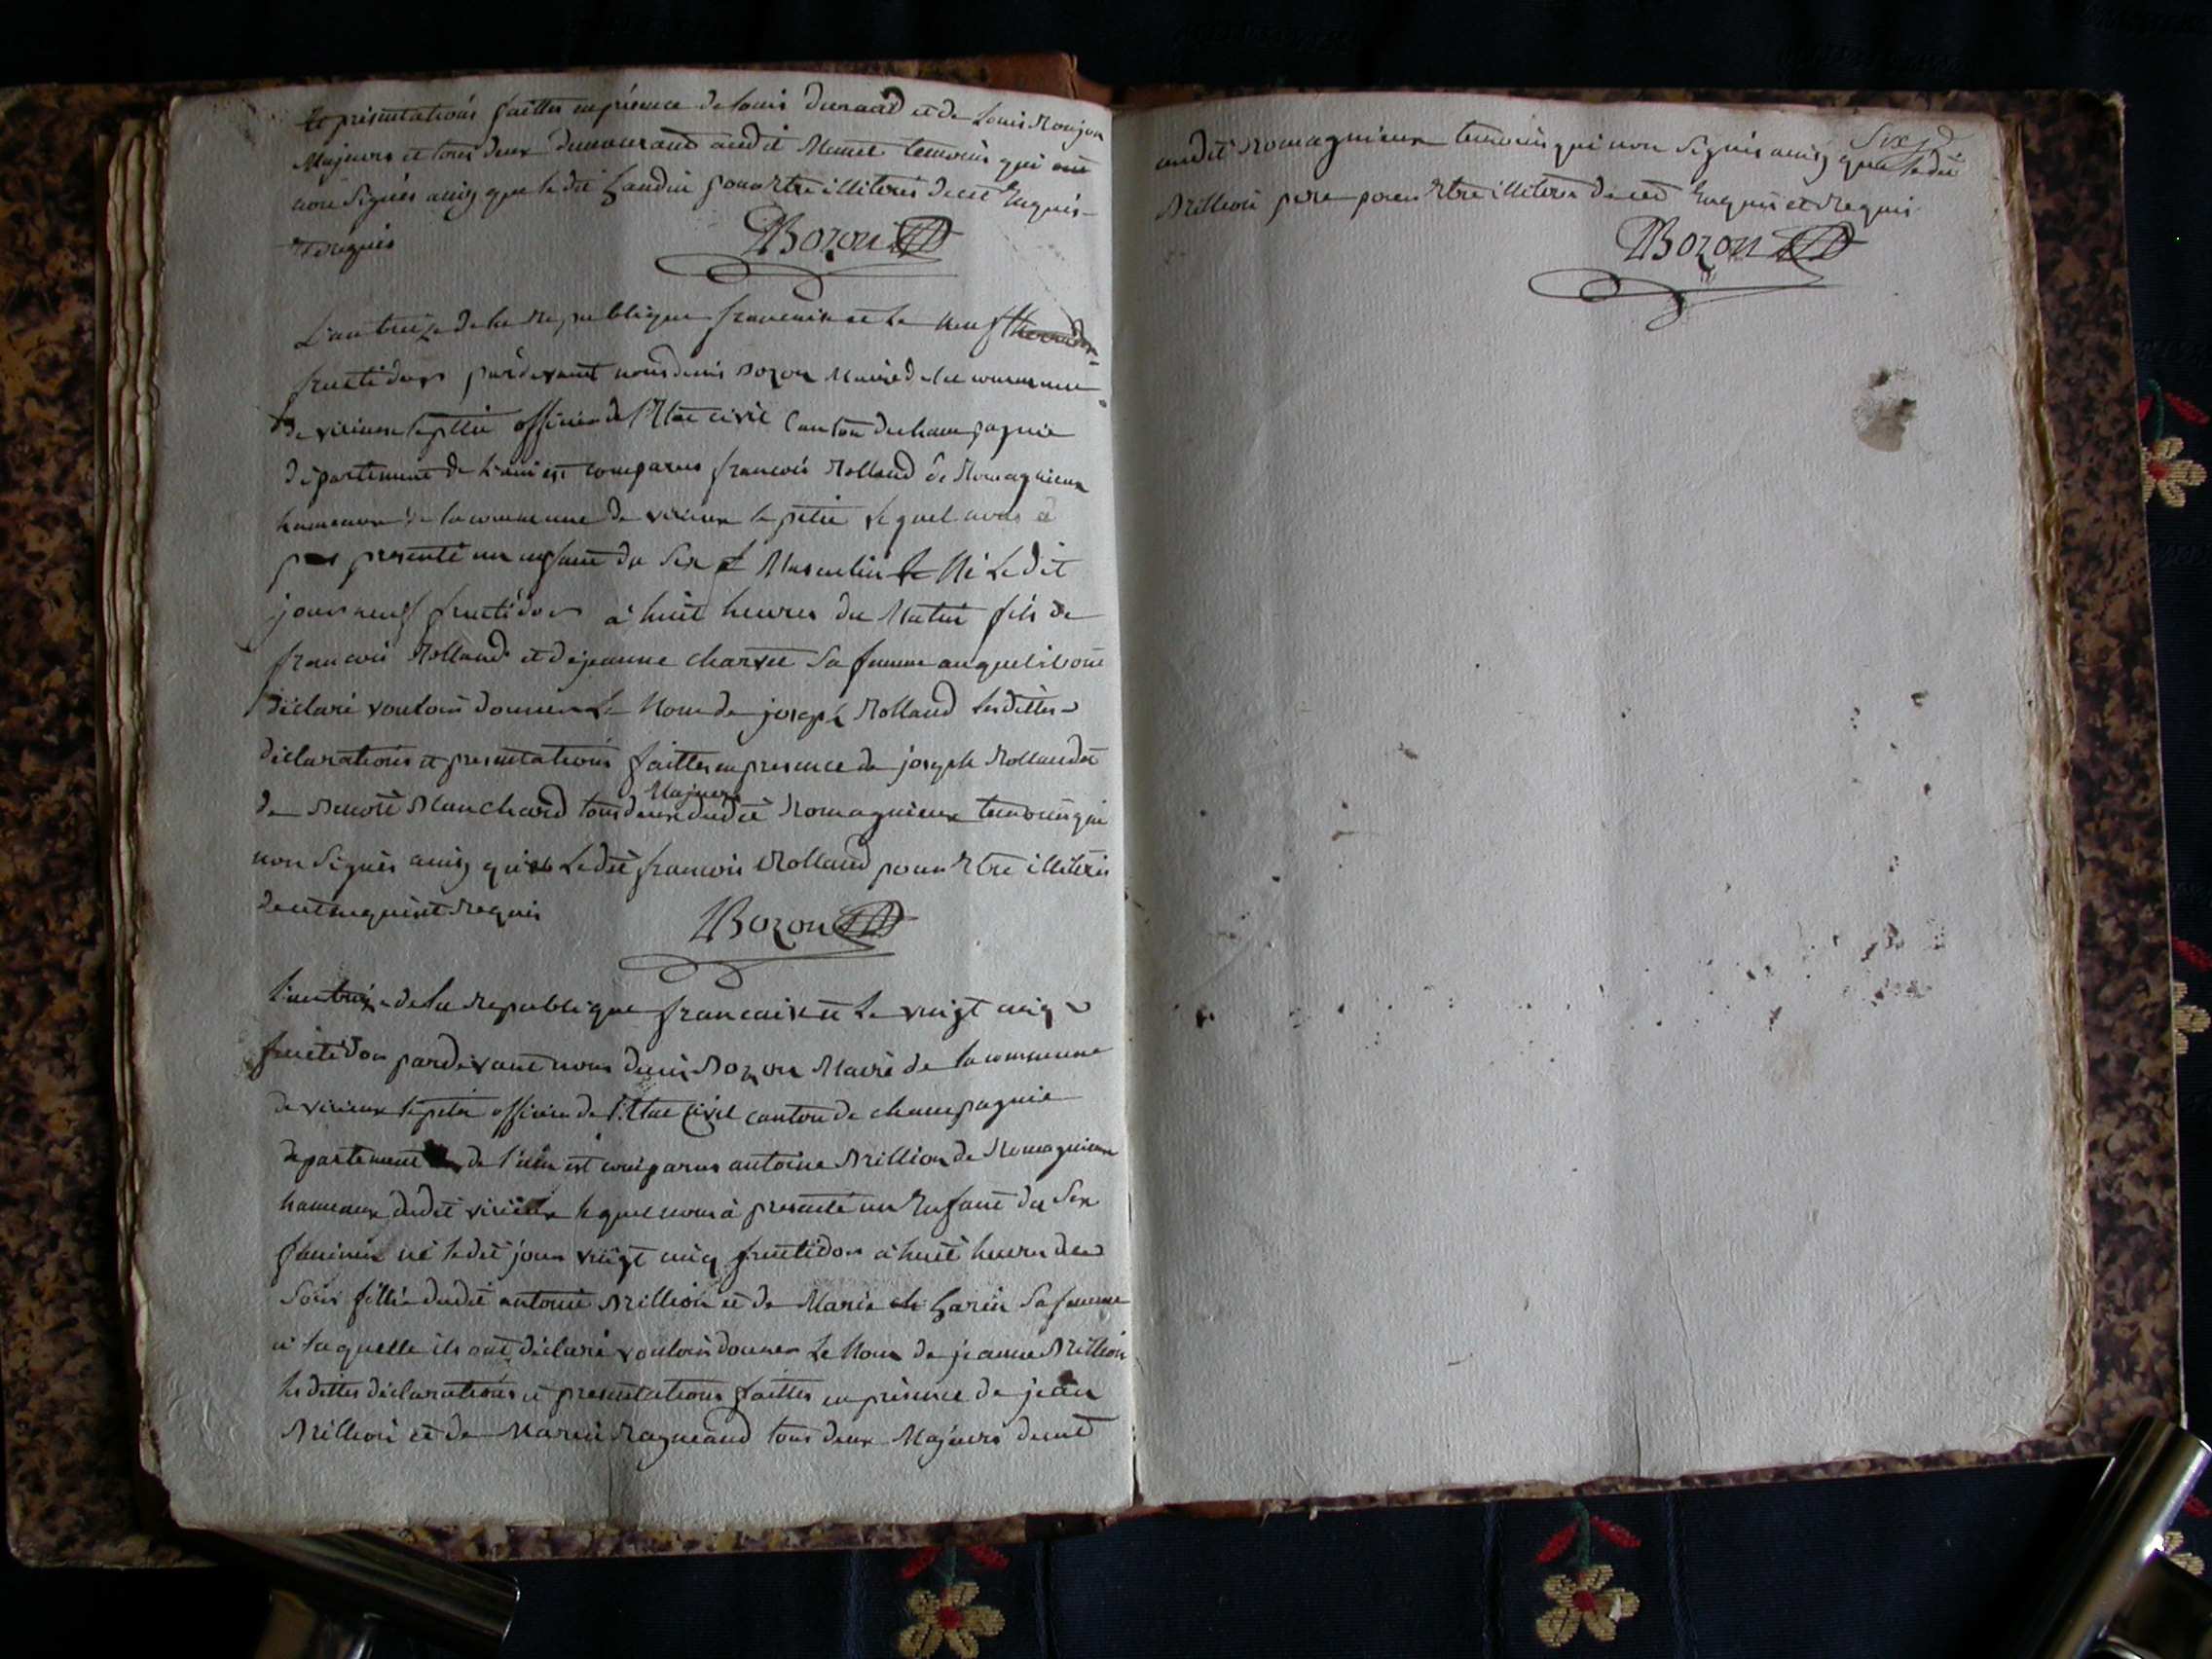 et présentations faittes en présence de Louis durand et de Louis Roujon
Majeurs et tous deux demeurant audit Munet temoins qui ont
non signés ainsy que le dit Gaudin pour etre illiterés de ce Enquis
et requis
DBozon
L'an treize de la Republique francaise et le neuf thermidor
fructidor pardevant nous denis Bozon Maire de la commune
de virieux le petit officier de l'Etat civil Canton de champagnie
département de L'ain est comparus francois Rolland de Romagnieux
hameaux de la commune de virieux le petit lequel nous a
presenté un enfant du Sex Masculin Né Ledit
jour neuf fructidor à huit heures du Matin fils de
francois Rolland et de jeanne charvet Sa femme auquel il ont
déclaré vouloir donner Le Nom de joseph Rolland Lesdittes
déclarations et presentations faittes en presence de joseph Rolland et
Majeurs
de Benoit Blanchard tous deux dudit Romagnieux temoins qui
non Signés ainsy que Ledit francois Rolland pour Etre illiterés
de ce enquis et Requis
DBozon
L'an treize de la Republique francaise et Le vingt cinq
fructidor pardevant nous denis Bozon Maire de la commune
de virieux le petit officier de l'Etat Civil canton de champagnie
departement de l'ain est comparus antoine Brillion de Romagnieux
hameaux dudit virieux lequel nous à presenté un Enfant du Sex
feminin né ledit jour vingt cinq fructidor à huit heures du
Soir fillie dudit antoine Brillion et de Marie Garin Sa femme
a laquelle ils ont déclaré vouloir donner Le Nom de jeanne Brillion
lesdittes déclarations et presentations faittes en présence de jean
Brillion et de Marin Ragueand tous deux Majeurs demt
Six
audit Romagnieux temoins qui non Signés ainsy que ledit
Brillion pere pour Etre illiteré de ce Enquis et Requis
DBozon